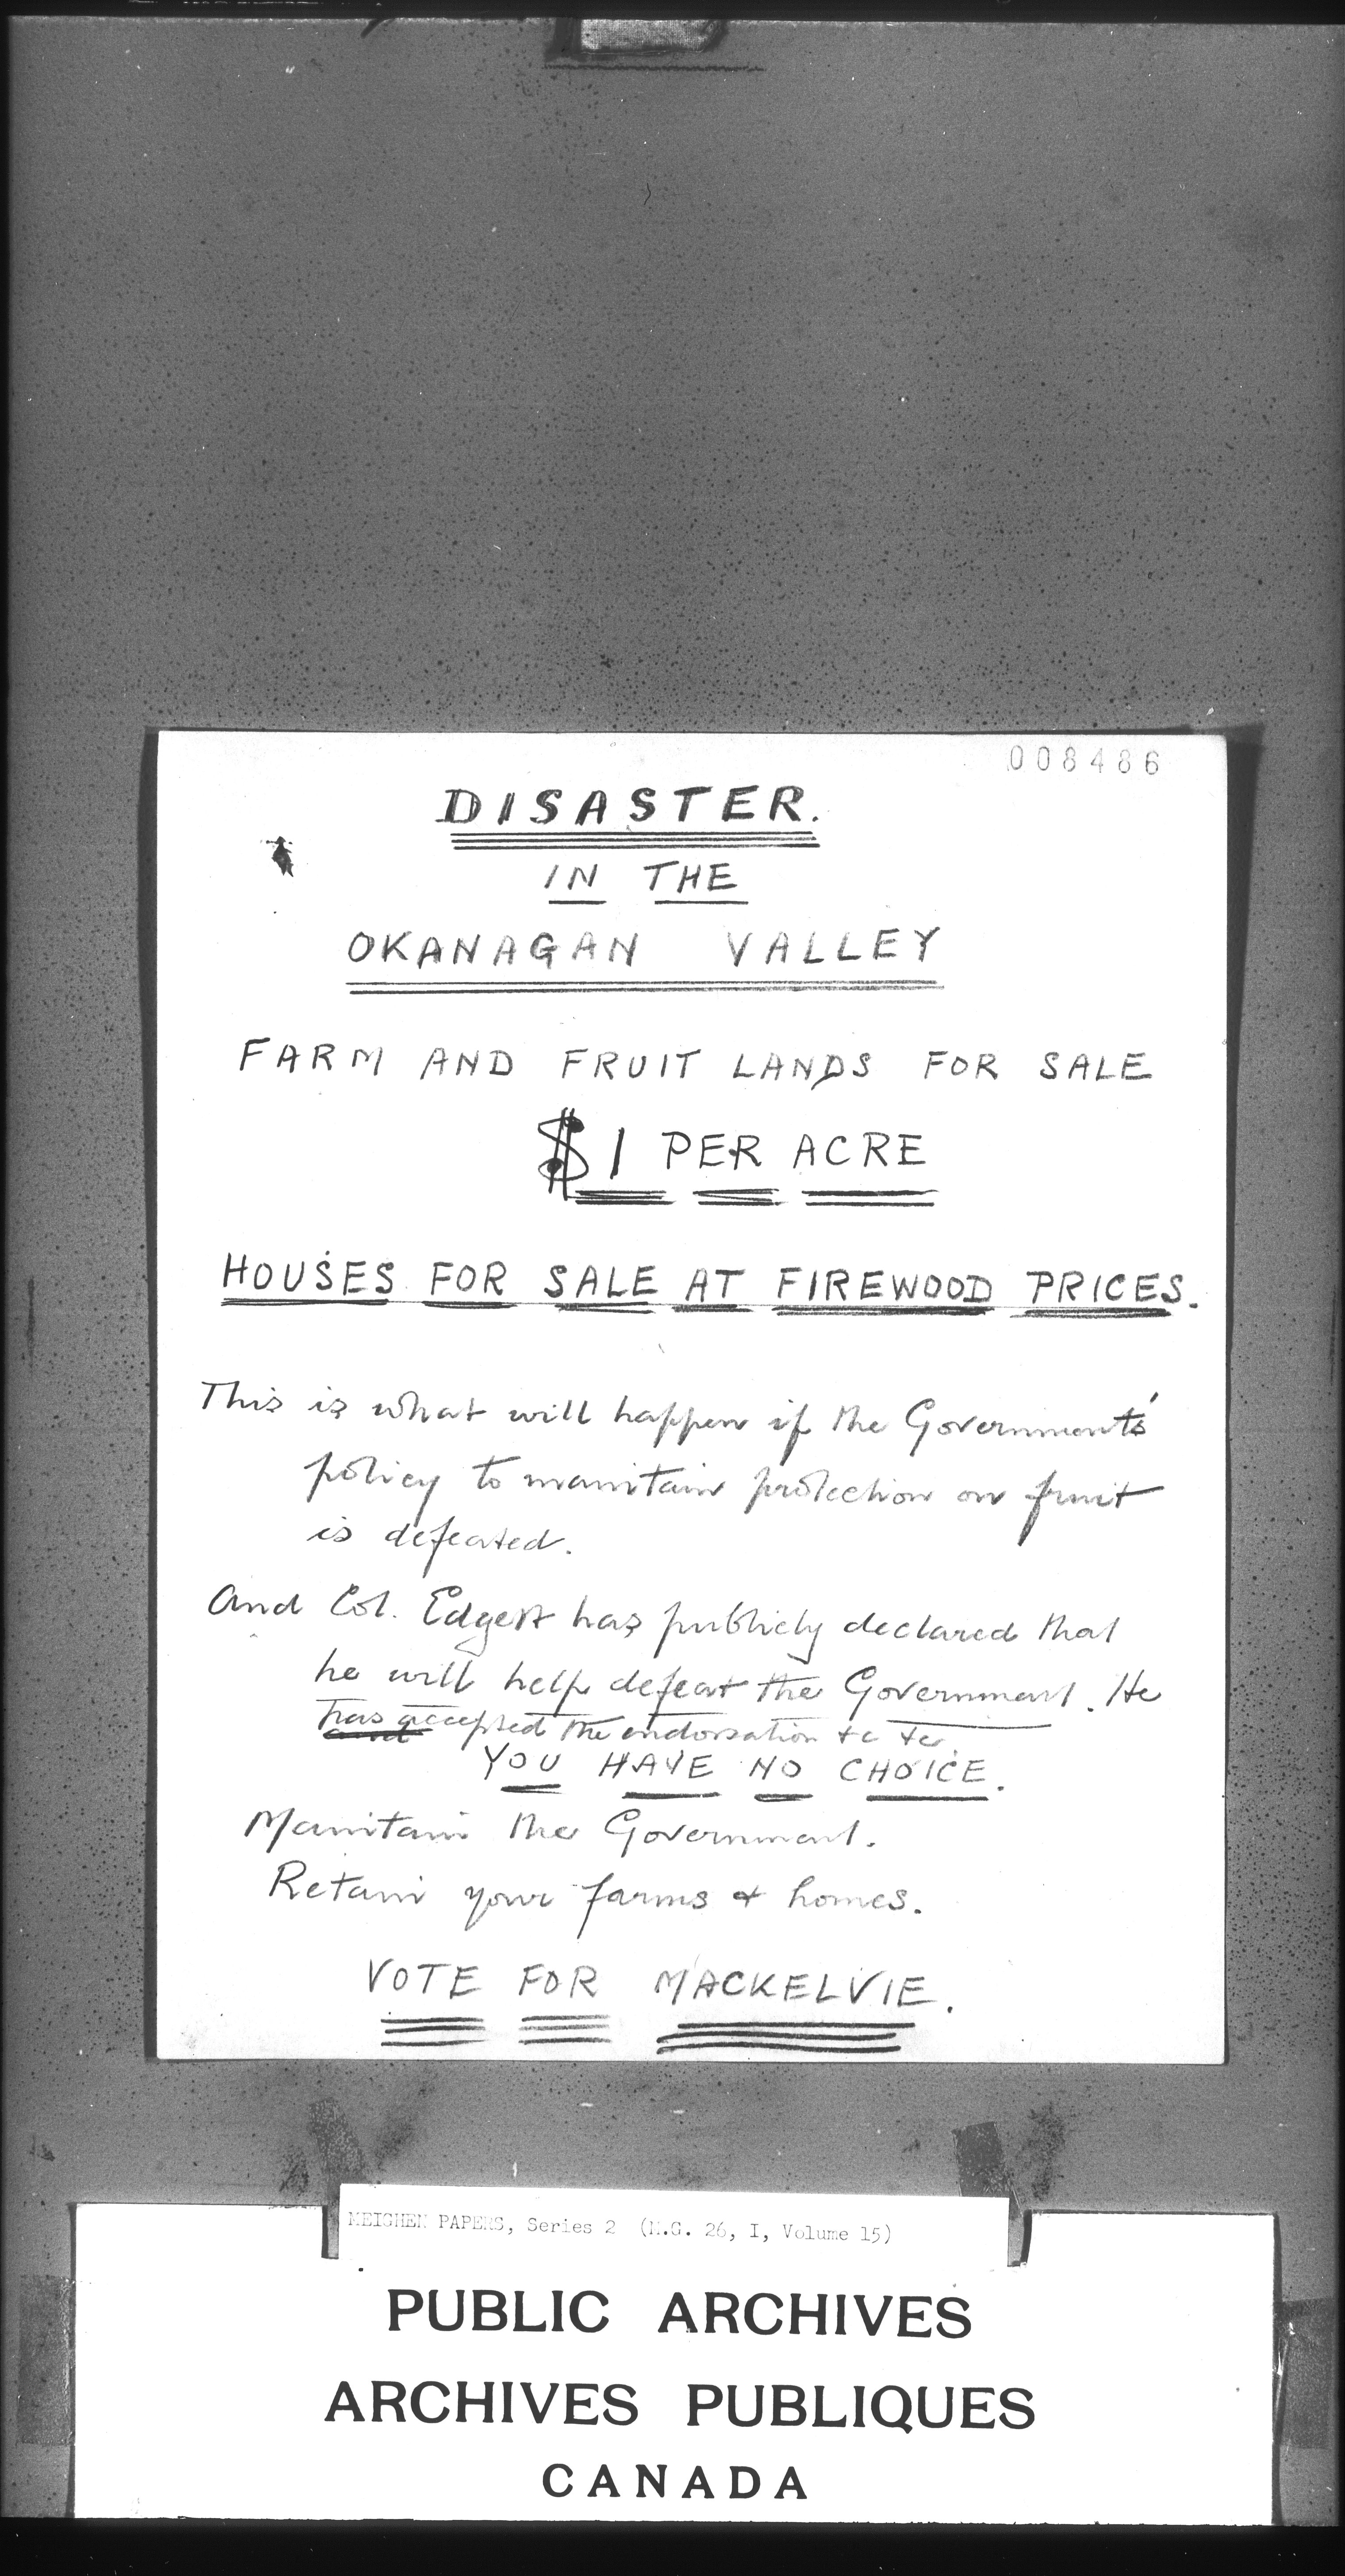 008486
DISASTER.
IN THE
OKANAGAN VALLEY
FARM AND FRUIT LANDS FOR SALE
$1 PER ACRE
HOUSES FOR SALE AT FIREWOOD PRICES.
This is what will happen if the Government's
policy to maintain protection on fruit
is defeated.
And Col. Edgett has publicly declared that
he will help defeat the Government. He
has accepted the endorsation &c &c.
YOU HAVE NO CHOICE.
Maintain the Government.
Retain your farms & homes.
VOTE FOR MACKELVIE.
MEIGHEN PAPERS, Series 2 (M.G. 26, I, Volume 15)
PUBLIC ARCHIVES
ARCHIVES PUBLIQUES
CANADA